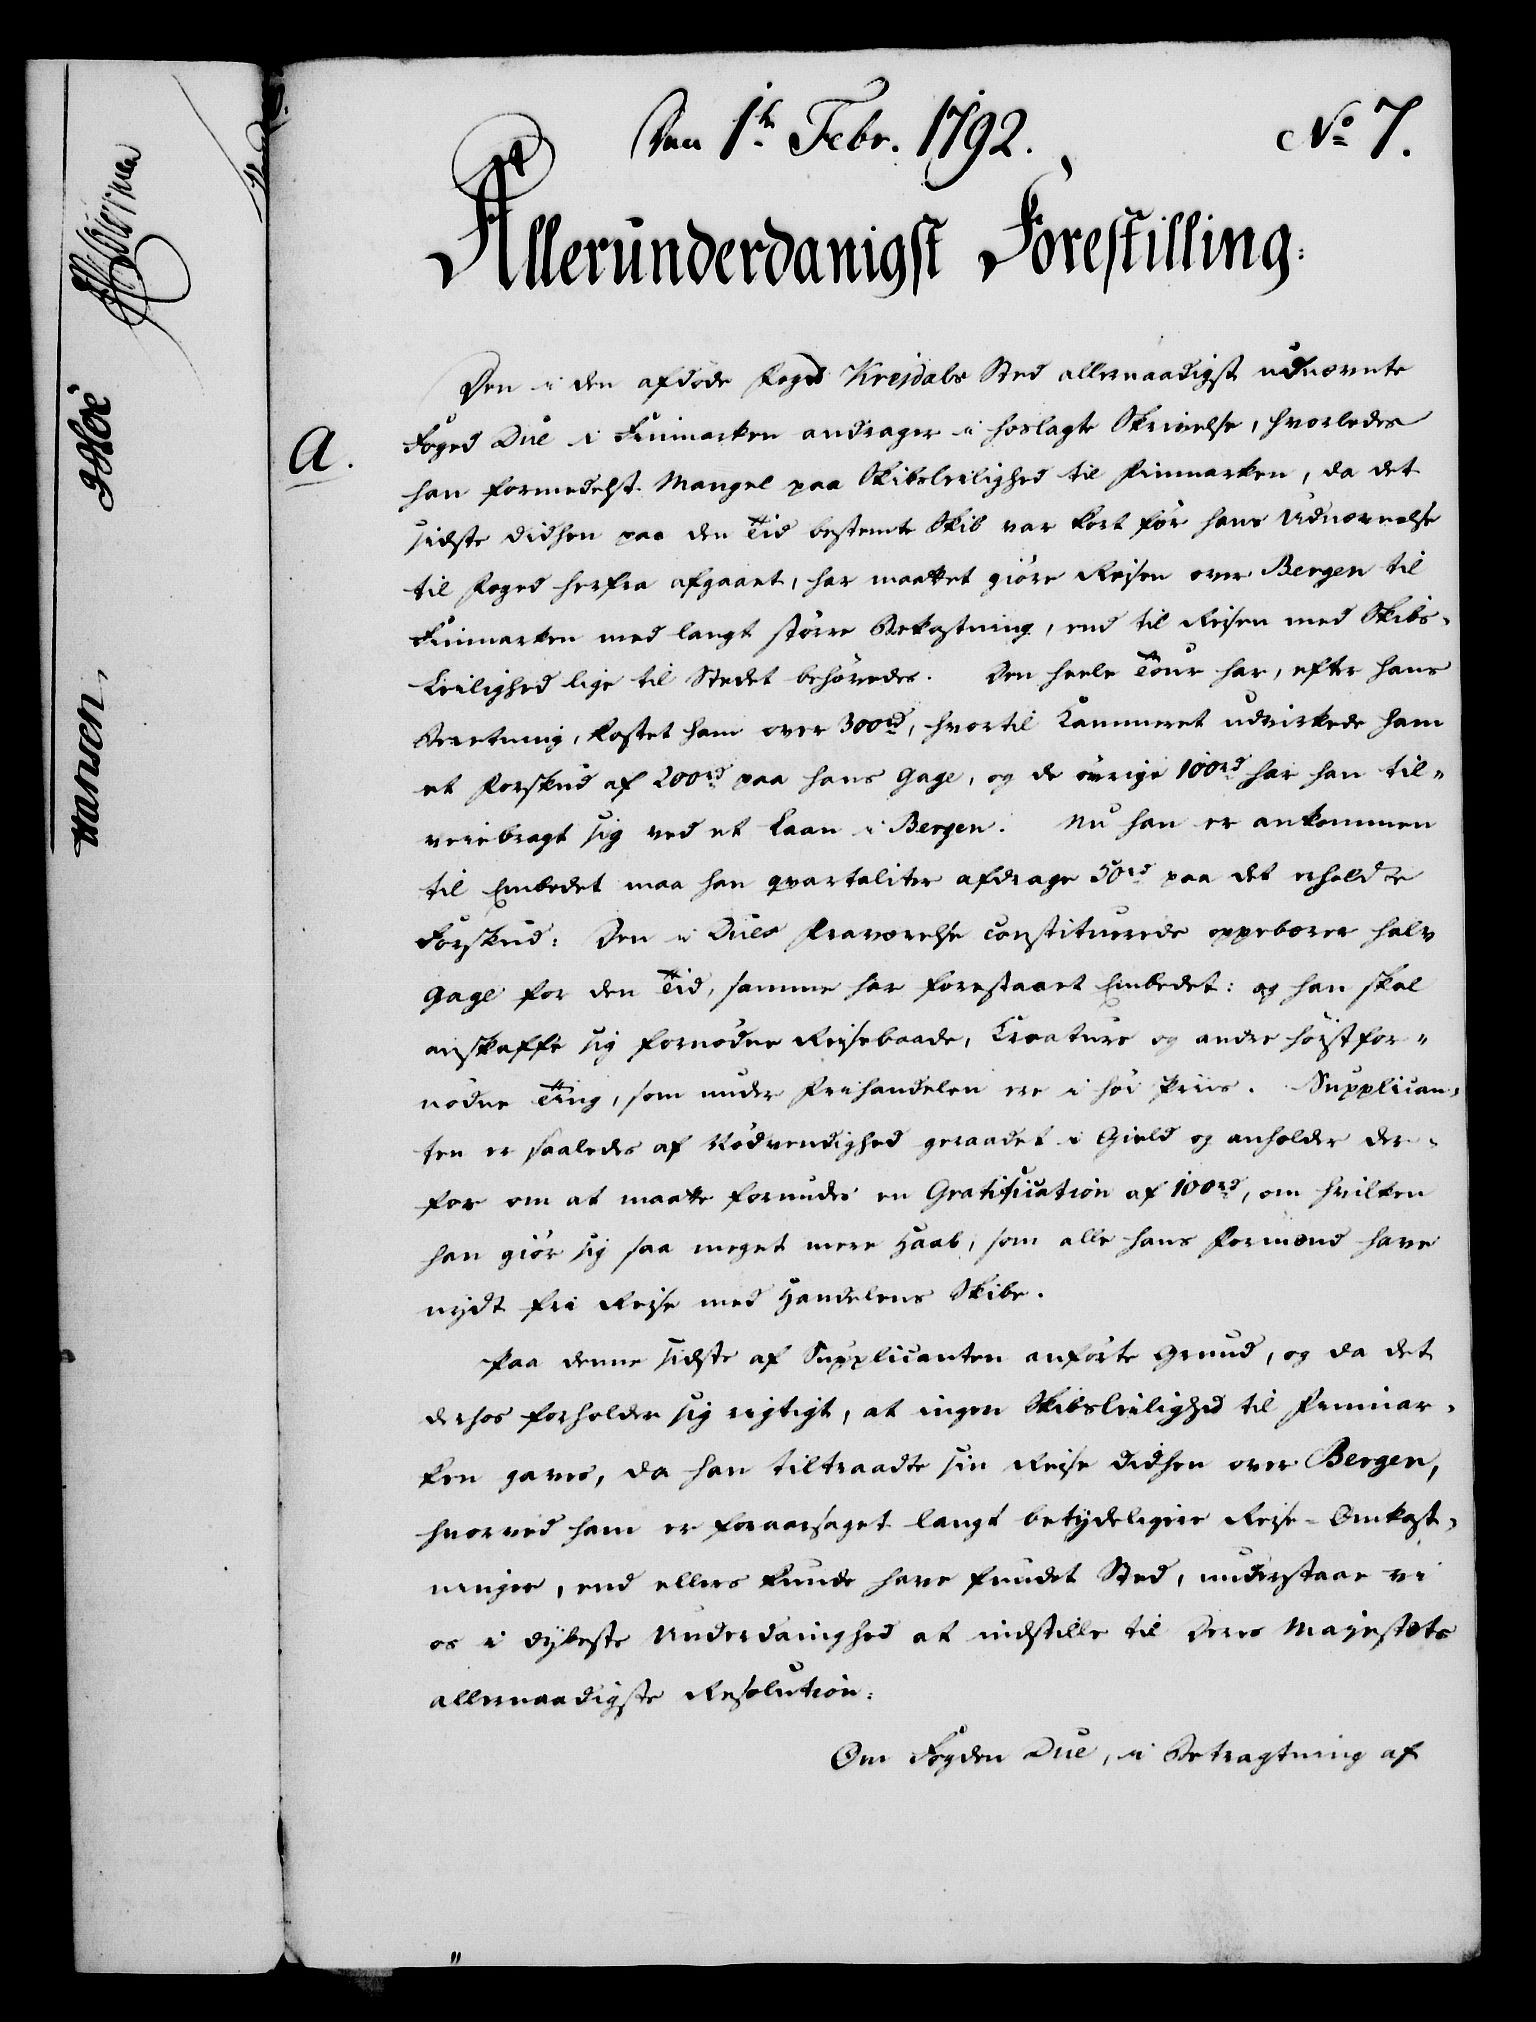 Den 1te Febr. 1792. No 7.
Allerunderdanigst Forestilling.
A.
Den i den afdøde Foged Krejdals Sted allernaadigst udnævnte
Foged Due i Finmarken andrager i hoslagte Skrivelse, hvorledes
han formedelst Mangel paa Skibsleilighed til Finmarken, da det
sidste didhen paa den Tid bestemte Skib var kort før hans Udnævnelse
til Foged herfra afgaaet, har maattet giöre Reisen over Bergen til
Finmarken med langt större Bekostning, end til Reisen med Skibs-
Leilighed lige til Stedet behövedes. Den heele Tour har, efter hans
Beretning, kostet ham over 300rd, hvortil Kammeret udvirkede ham
et Forskud af 200rd paa hans Gage, og de övrige 100rd har han til-
veiebragt sig ved et Laan i Bergen. Nu han er ankommen
til Embedet maa han qvartaliter afdrage 50rd paa det erholdte
Forskud: Den i Dues Fraværelse constituerede oppebærer halv
Gage for den Tid, samme har forestaaet Embedet: og han skal
anskaffe sig fornødne Reisebaade, Creature og andre höistfor-
nödne Ting, som under Frihandelen ere i höi Priis. Supplican-
ten er saaledes af Nödvendighed geraadet i Gield og anholder der-
for om at maatte forundes en Gratification af 100rd, om hvilken
han giör sig saa meget mere Haab, som alle hans Formænd have
nydt fri Reise med Handelens Skibe.
Paa denne sidste af Supplicanten anförte Grund, og da det
derhos forholder sig rigtigt, at ingen Skibsleilighed til Finmar-
ken gaves, da han tiltraadte sin Reise didhen over Bergen,
hvorved ham er foraarsaget langt betydeligere Reise-Omkost-
ninger, end ellers kunde have fundet Sted, understaae vi
os i dybeste Underdanighed at indstille til Deres Majestæts
allernaadigste Resolution:
Om Fogden Due, i Betragtning af
Hansen,